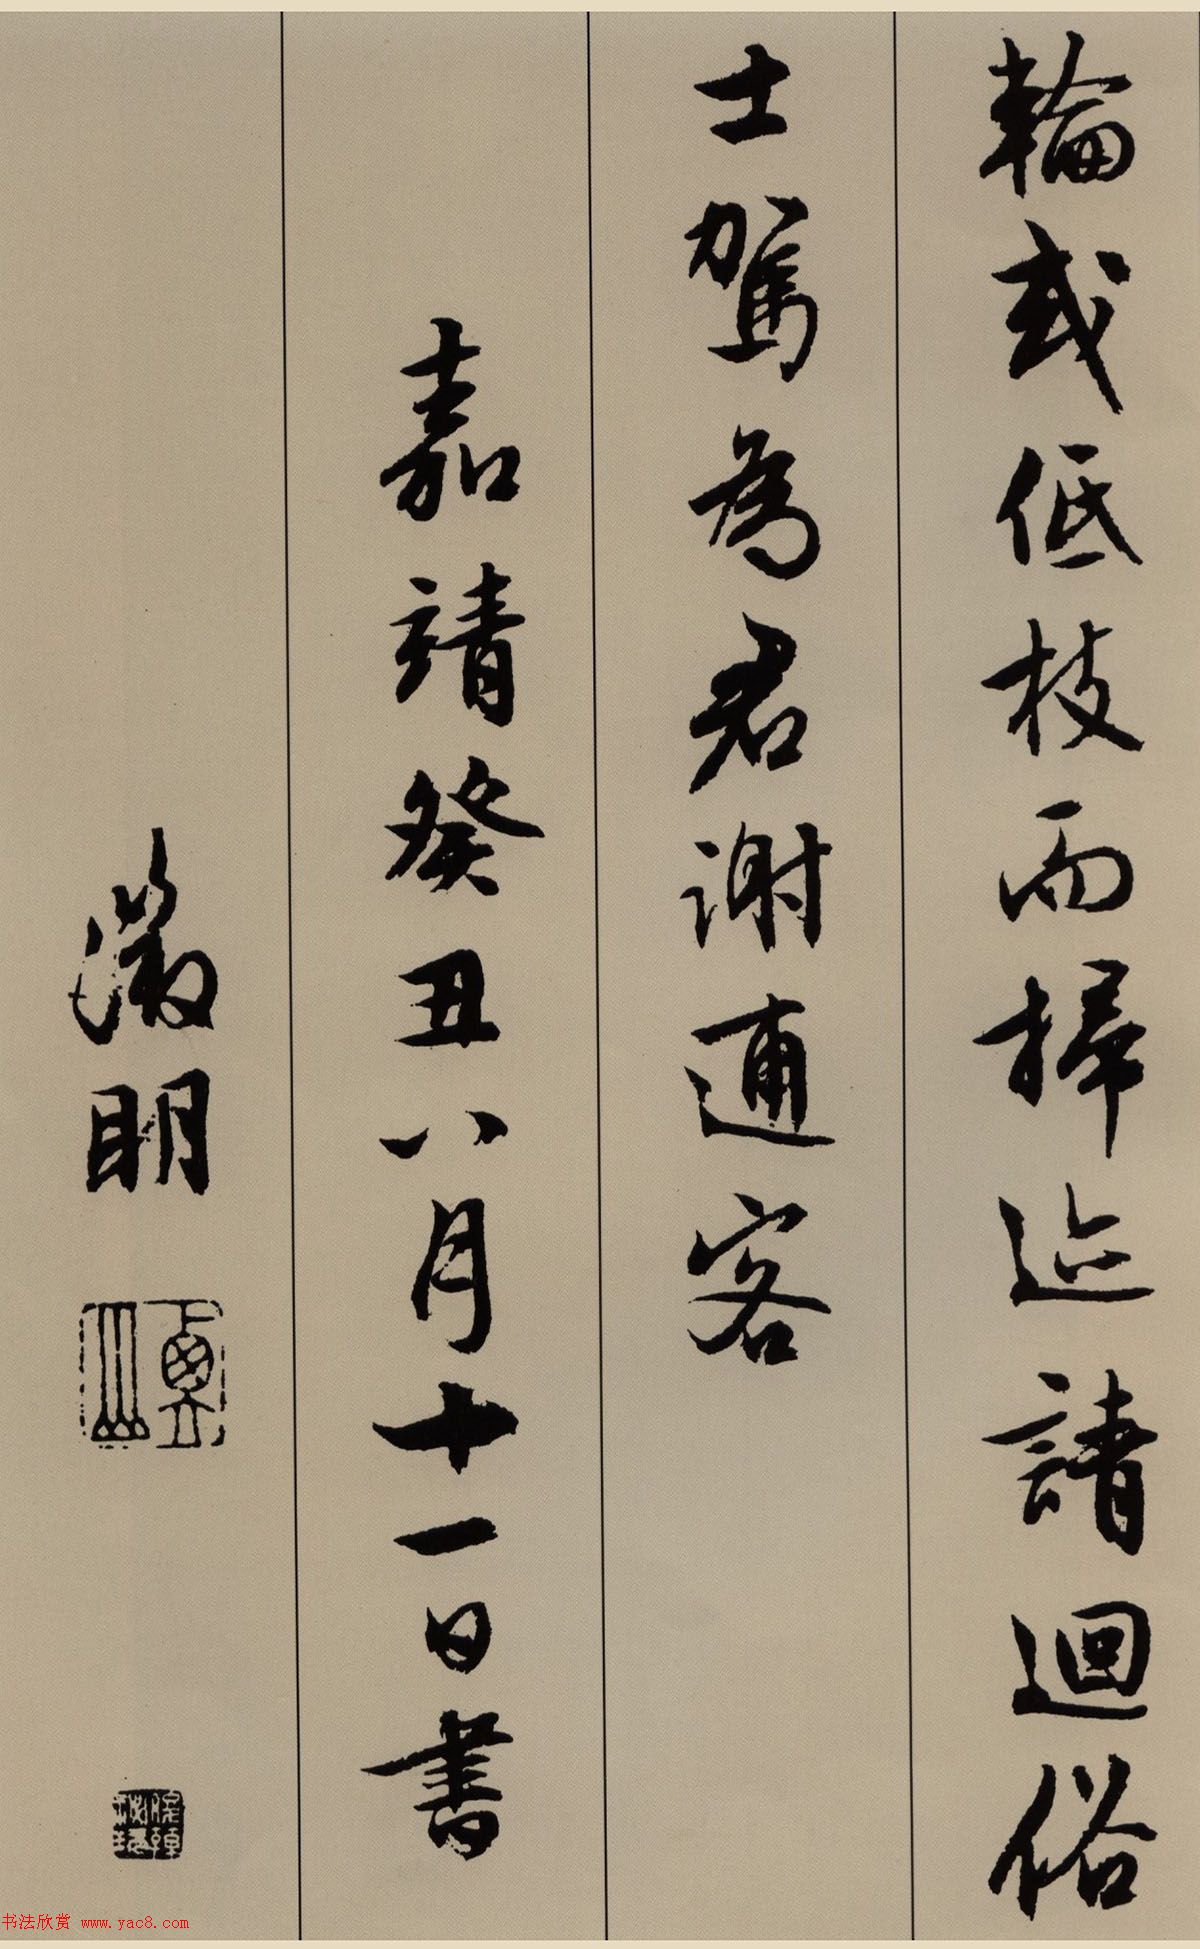 輪或低枝而掃迹請迴俗
士駕為君謝逋客
嘉靖癸丑八月十一日書
徵明
书法欣赏 www.yac8.com